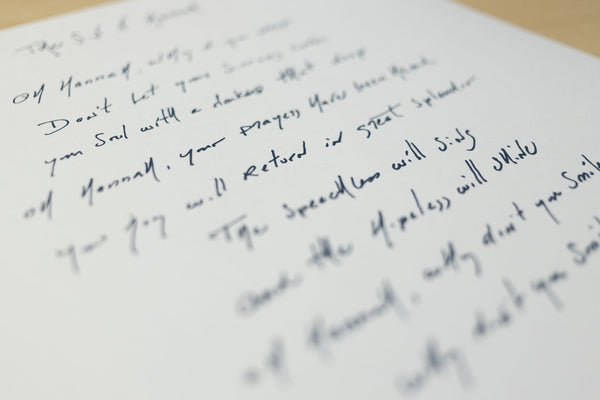 Oh Hannah, why d
Don't let your
your Soul with a darkness that deep
Oh Hannah, your prayers have been heard
your joy will return in great splendor
The speechless will sing
and the Hopeless will shine
Oh Hannah, why don't you Smile
why don't you Smile